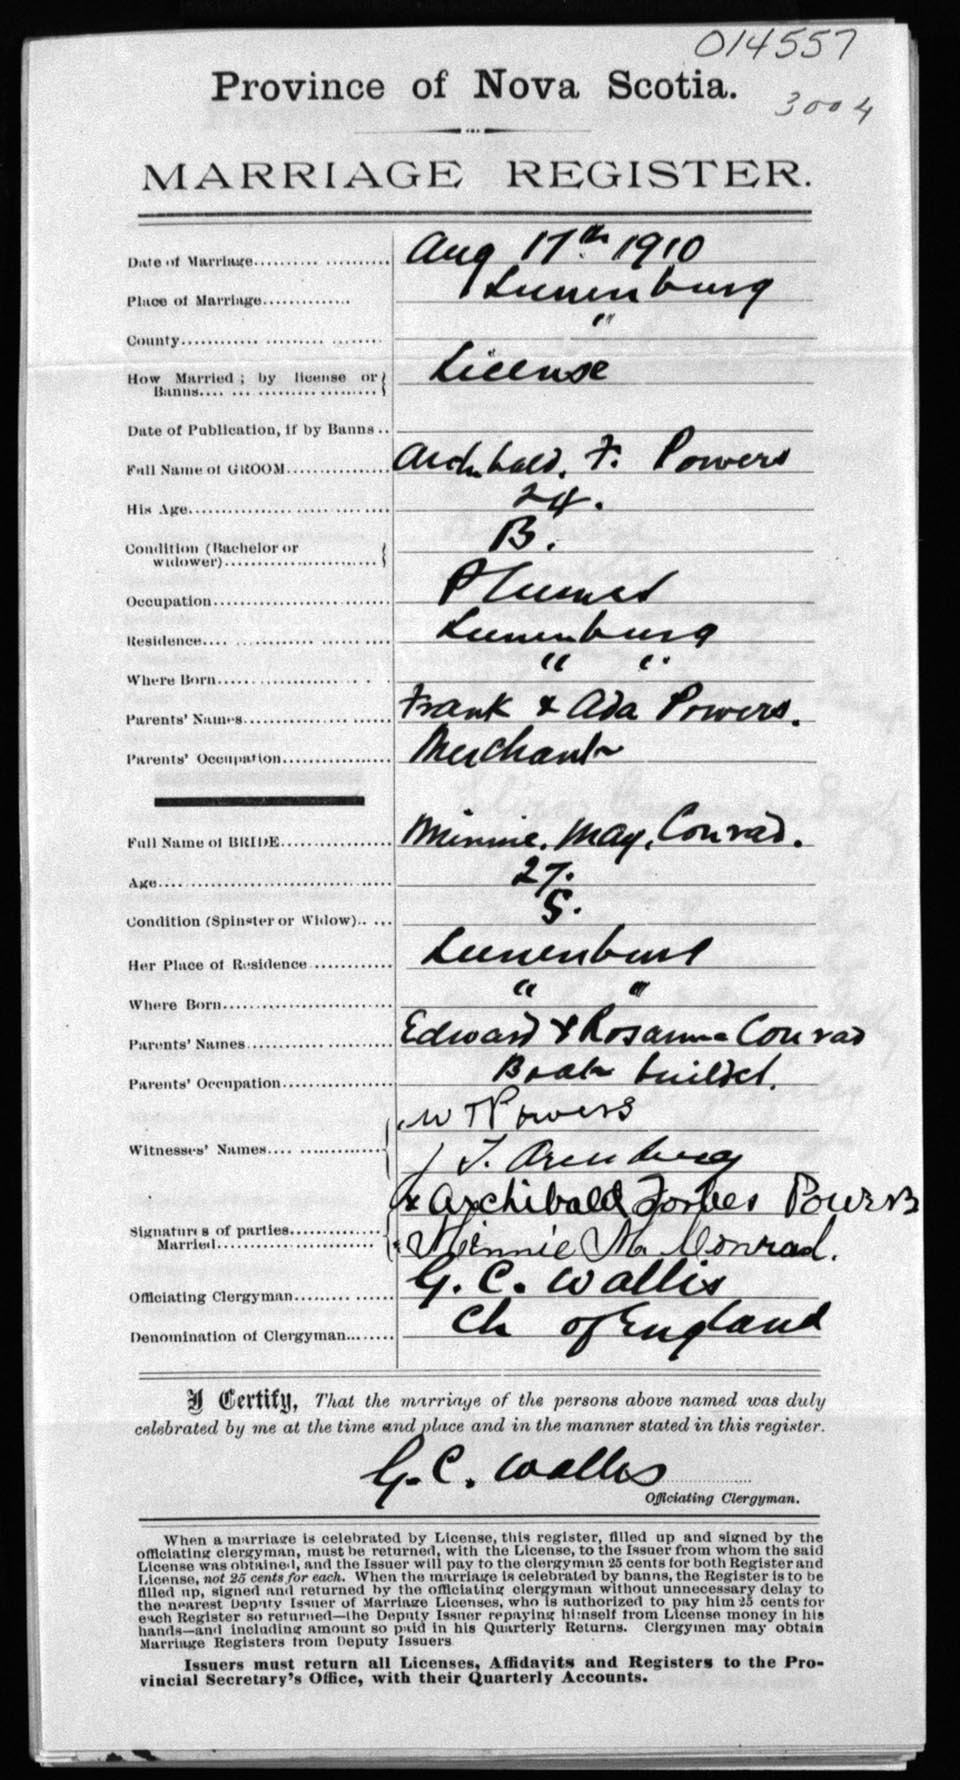 014557
Province of Nova Scotia.
3004
MARRIAGE REGISTER.
Date of Marriage Aug 17th 1910
Place of Marriage Lunenburg
County "
How Married; by license or Banns License
Date of Publication, if by Banns
Full Name of GROOM Archbald. F. Powers
His Age 24.
Condition (Bachelor or widower) B.
Occupation Plumer
Residence Lunenburg
Where Born " "
Parents' Names Frank & Ada Powers.
Parents' Occupation Merchant
Full Name of BRIDE Minnie. May. Conrad.
Age 27.
Condition (Spinster or Widow) S.
Her Place of Residence Lunenburg
Where Born " "
Parents' Names Edward & Rosanna Conrad
Parents' Occupation Boat builder.
Witnesses' Names W T Powers
J. T. Arenburg
Signatures of parties Married x Archibald Forbes Powers
Minnie M. Conrad.
Officiating Clergyman G. C. Wallis
Denomination of Clergyman Ch of England
I Certify, That the marriage of the persons above named was duly
celebrated by me at the time and place and in the manner stated in this register.
G. C. Wallis
Officiating Clergyman.
When a marriage is celebrated by License, this register, filled up and signed by the
officiating clergyman, must be returned, with the License, to the Issuer from whom the said
License was obtained, and the Issuer will pay to the clergyman 25 cents for both Register and
License, not 25 cents for each. When the marriage is celebrated by banns, the Register is to be
filled up, signed and returned by the officiating clergyman without unnecessary delay to
the nearest Deputy Issuer of Marriage Licenses, who is authorized to pay him 25 cents for
each Register so returned—the Deputy Issuer repaying himself from License money in his
hands—and including amount so paid in his Quarterly Returns. Clergymen may obtain
Marriage Registers from Deputy Issuers
Issuers must return all Licenses, Affidavits and Registers to the Pro-
vincial Secretary's Office, with their Quarterly Accounts.